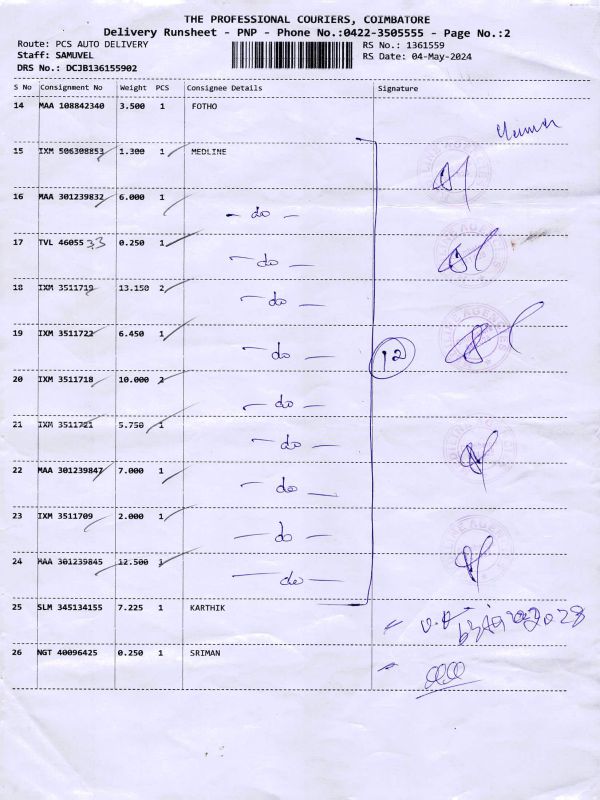 THE PROFESSIONAL COURIERS, COIMBATORE
Delivery Runsheet - PNP - Phone No.:0422-3505555 - Page No.:2
Route: PCS AUTO DELIVERY RS No.: 1361559
Staff: SAMUVEL RS Date: 04-May-2024
DRS No.: DCJB136155902
S No Consignment No Weight PCS Consignee Details Signature
14 MAA 108842340 3.500 1 FOTHO
15 IXM 506308853 1.300 1 MEDLINE
16 MAA 301239832 6.000 1 - do -
17 TVL 4605533 0.250 1 - do -
18 IXM 3511719 13.150 2 - do -
19 IXM 3511722 6.450 1 - do - 12
20 IXM 3511718 10.000 2 - do -
21 IXM 3511721 5.750 1 - do -
22 MAA 301239847 7.000 1 - do -
23 IXM 3511709 2.000 1 - do -
24 MAA 301239845 12.500 1 - do -
25 SLM 345134155 7.225 1 KARTHIK
26 NGT 40096425 0.250 1 SRIMAN